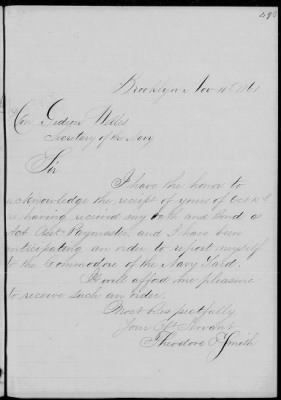 Brooklyn Nov 10 1861
Hon Gideon Welles
Secretary of the Navy
Sir
I have the honor to
acknowledge the receipt of yours of Oct
as having received my oath and bond as
Act Asst Paymaster, and I have been
anticipating an order to report myself
to the Commodore of the Navy Yard.
It will afford me pleasure
to receive such an order.
Most Respectfully
Your Obt Servant
Theodore Smith